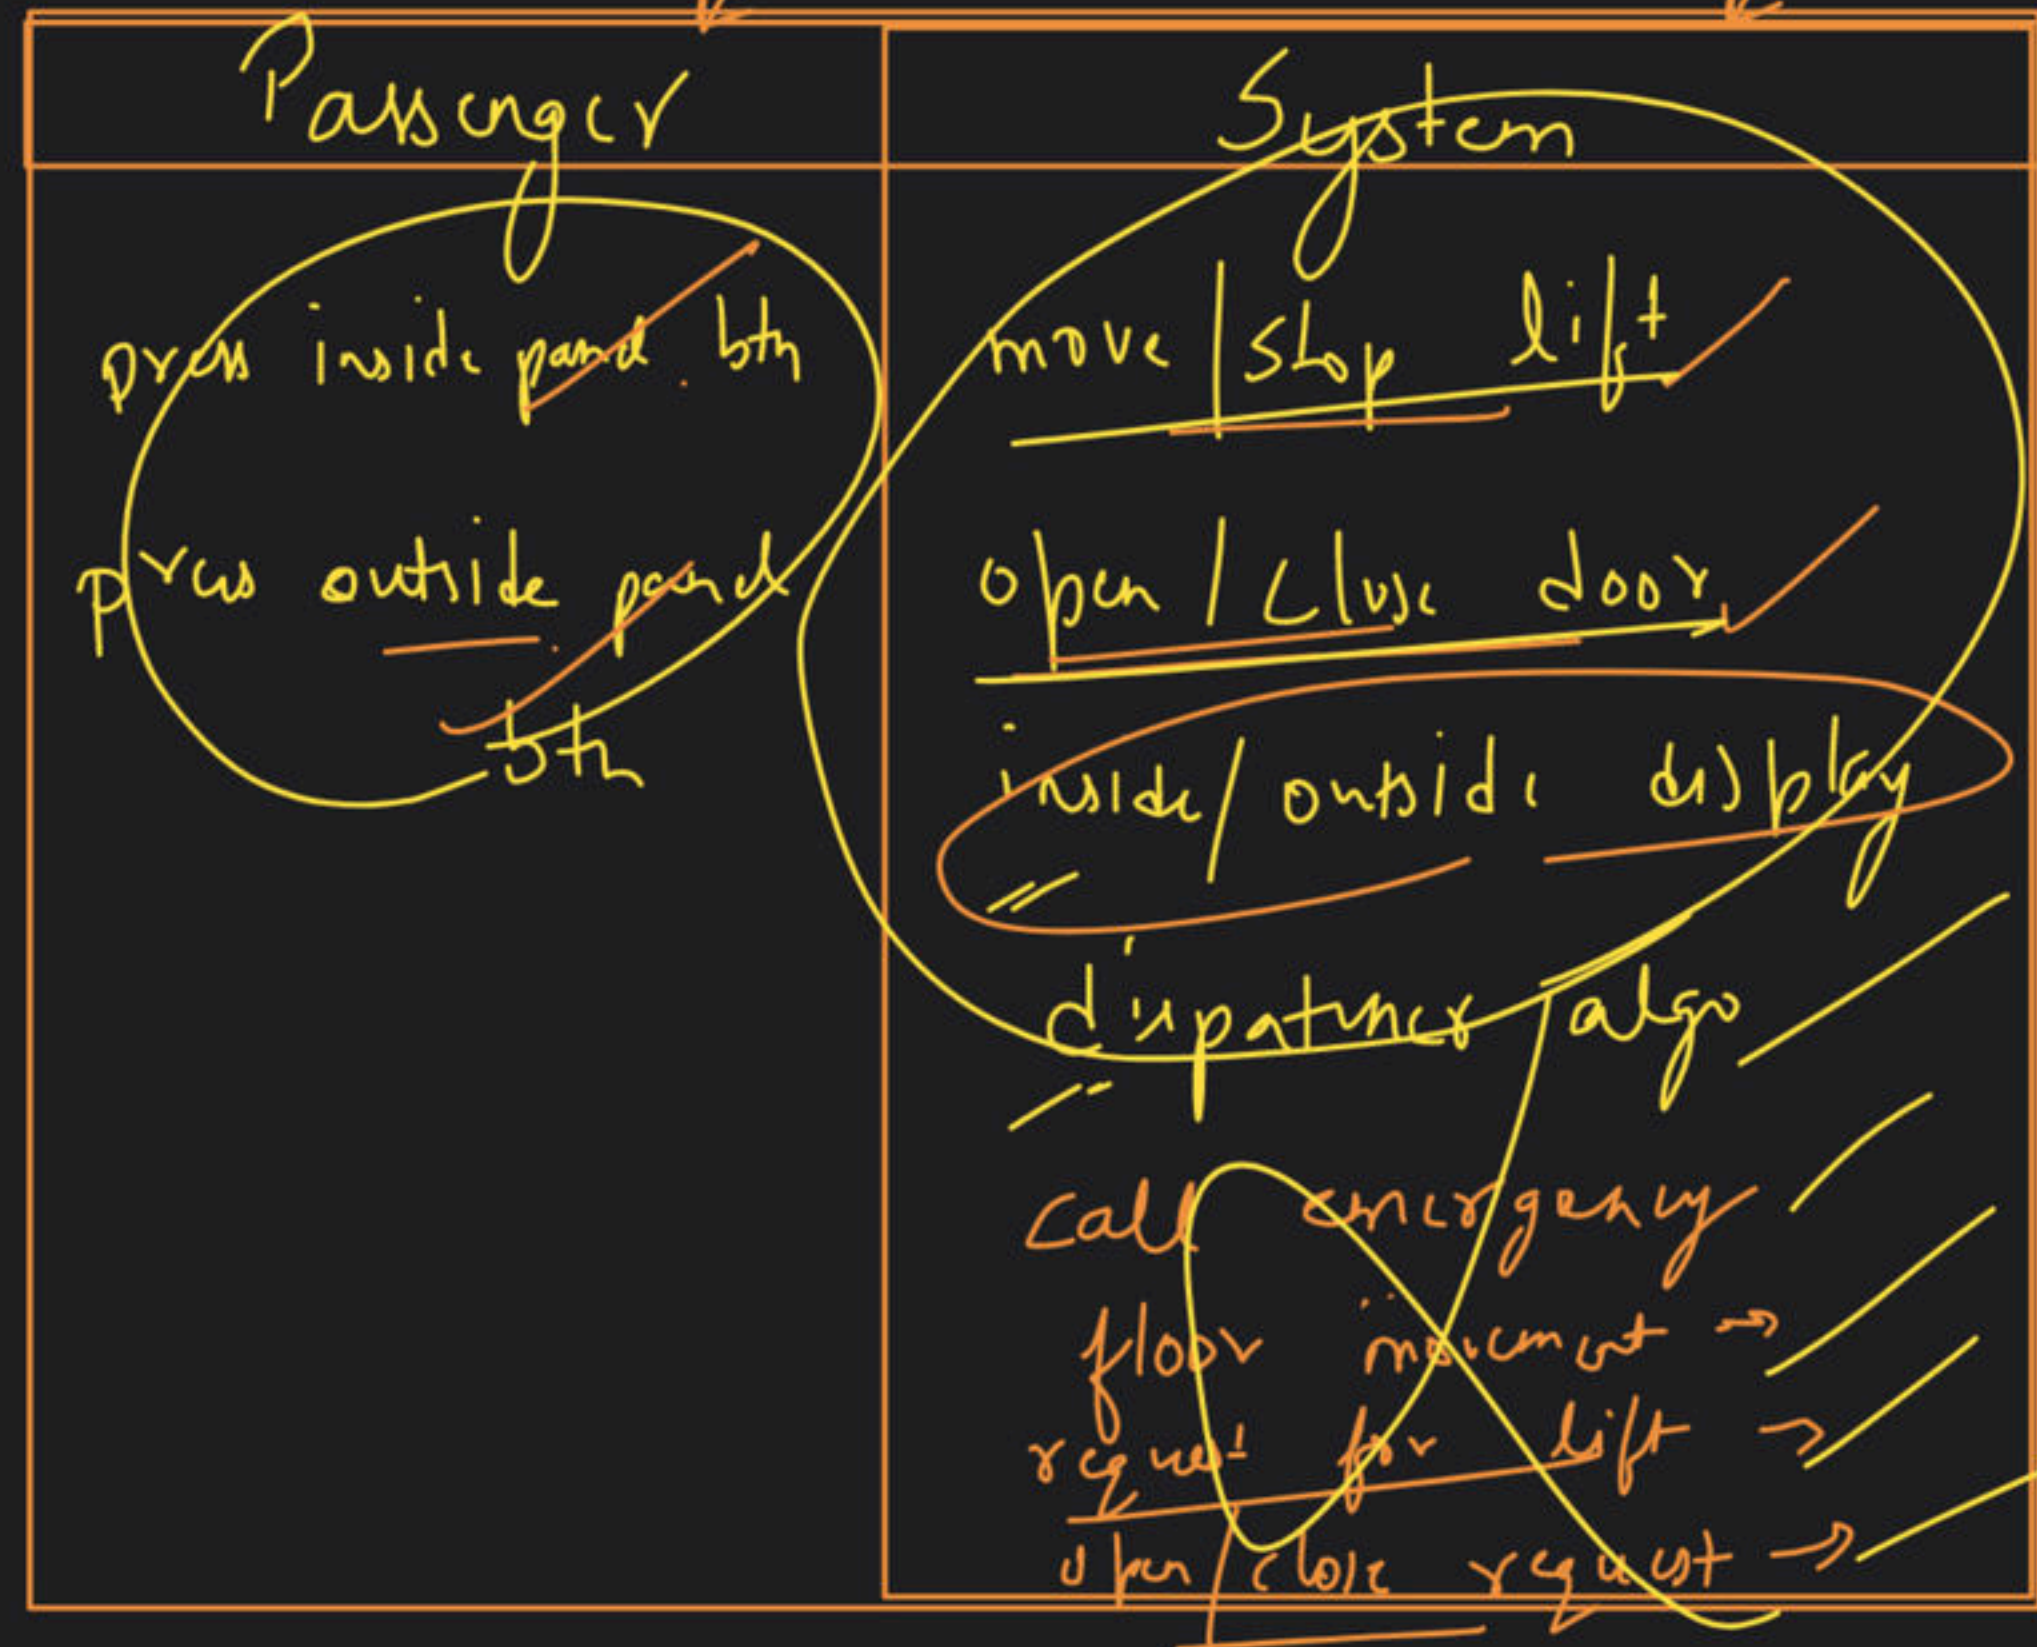 Passenger
System
press inside panel btn
move/stop lift
press outside panel
btn
open/close door
inside/outside display
dispatcher algo
call emergency
floor movement →
request for lift →
open/close request →